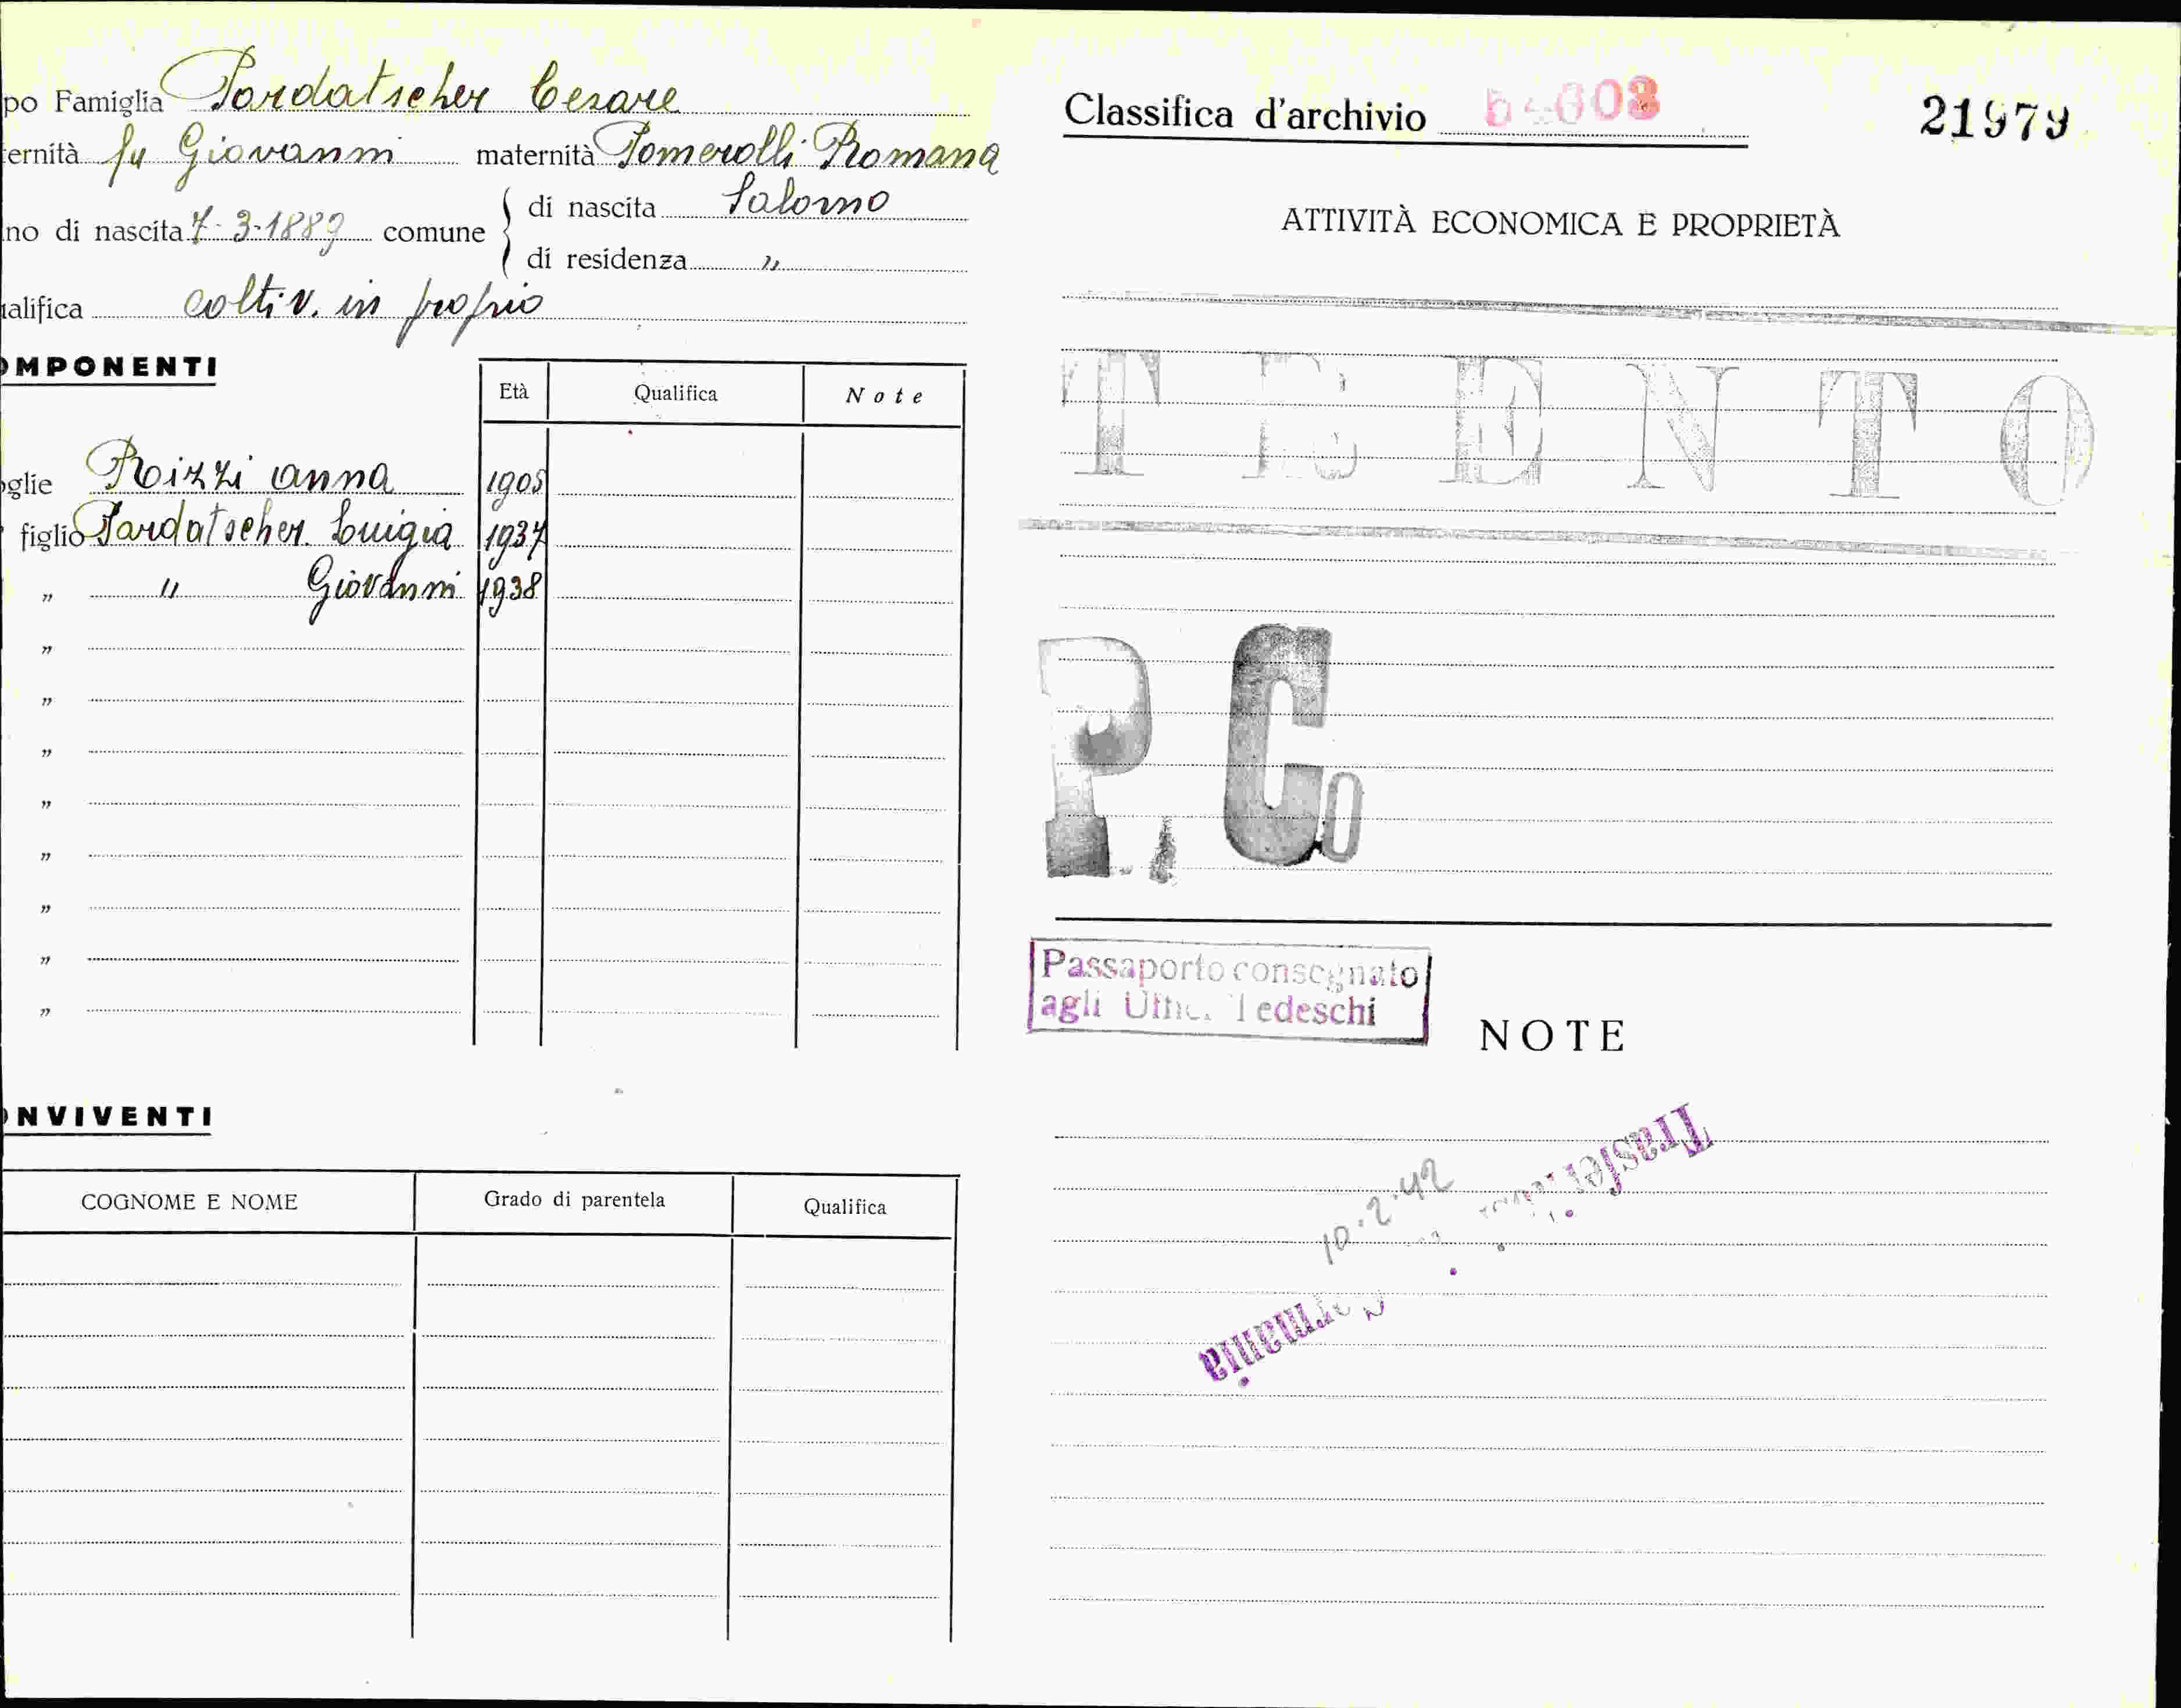 po Famiglia Pardatscher Cesare
ernità fu Giovanni maternità Pomerolli Romana
no di nascita 7-3-1889 comune di nascita Salorno
di residenza "
alifica coltiv. in proprio
OMPONENTI
Età Qualifica Note
oglie Rizzi Anna 1905
figlio Pardatscher Luigia 1937
" " Giovanni 1938
"
"
"
"
"
"
"
"
ONVIVENTI
COGNOME E NOME Grado di parentela Qualifica
Classifica d'archivio
21979
ATTIVITÀ ECONOMICA E PROPRIETÀ
TRENTO
P. Co
Passaporto consegnato
agli Uffic. Tedeschi
NOTE
10.2.42